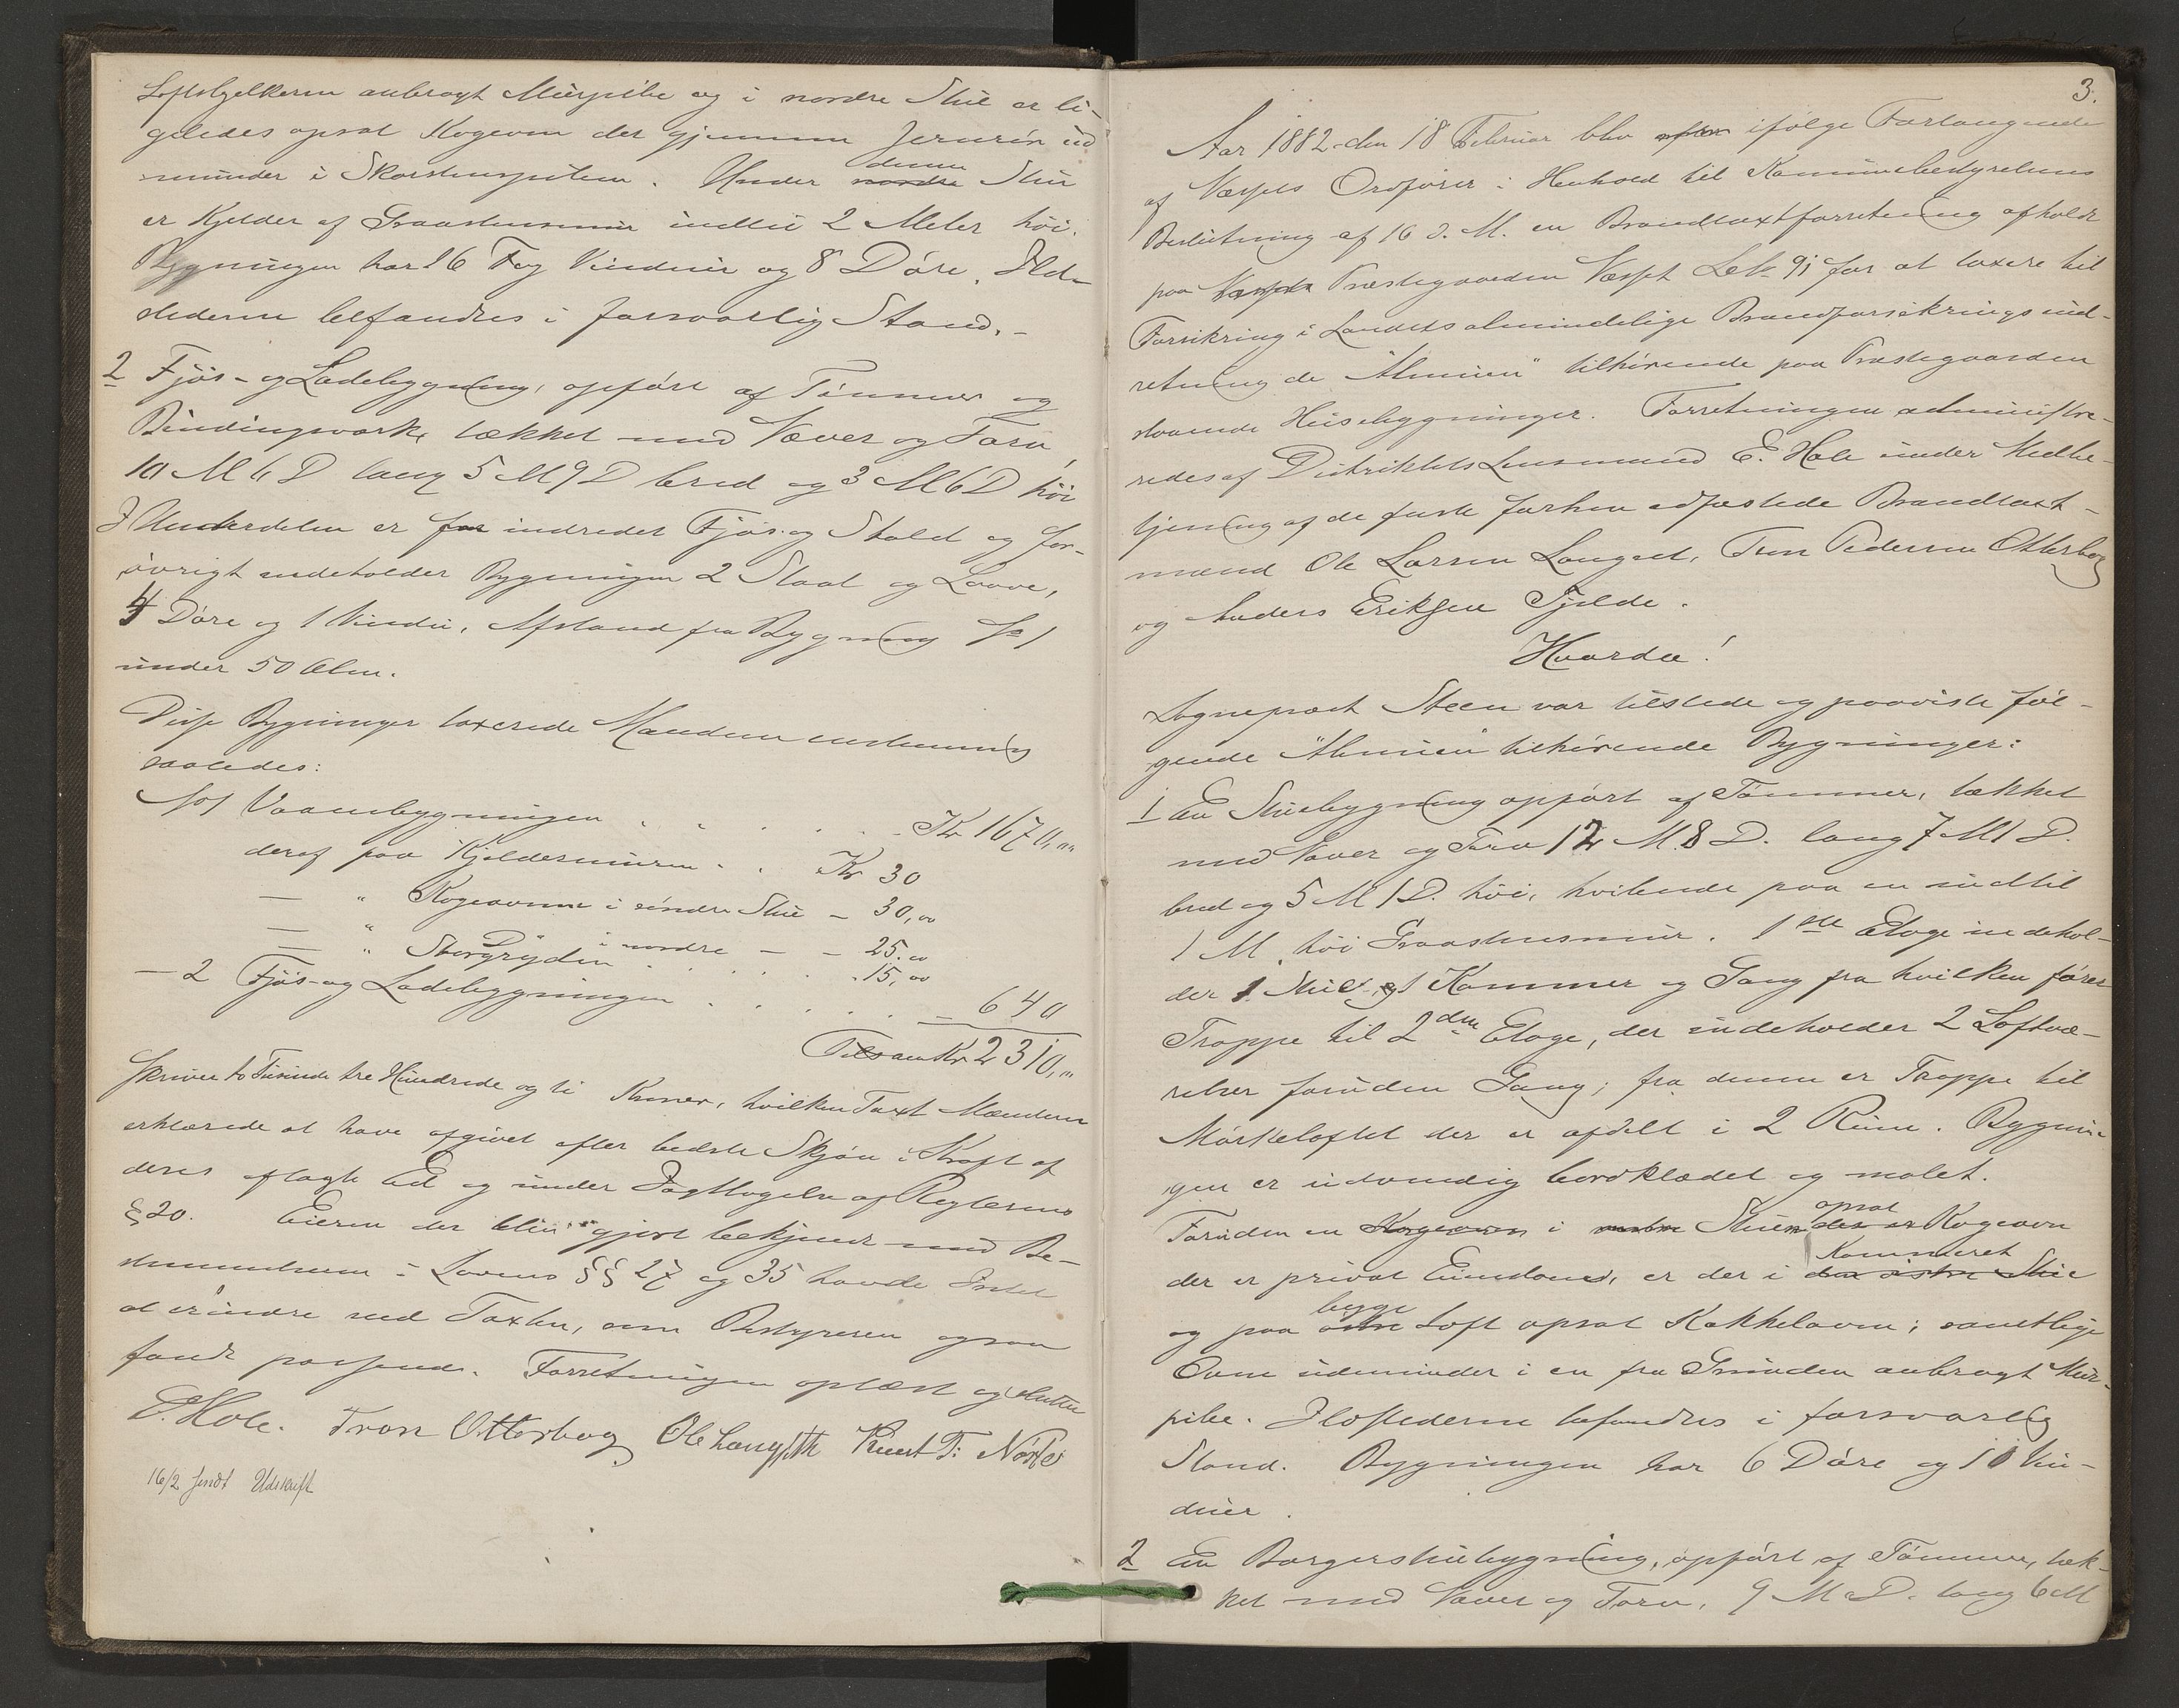 Loftsbjelkerne anbragt Muurpibe og i nordre Stue er li-
geledes opsat Kogeovn der gjennem Jernrör ud
munder i Skorstenspiben. Under nordre denne Stue
er Kjelder af Graastensmuur indtil 2 Meter höi.
Bygningen har 16 Fag Vinduer og 8 Döre. Ild-
stederne befandtes i forsvarlig Stand. -
2 Fjös- og Ladebygning, opfört af Tömmer og
Bindingsverk, tækket med Næver og Torv,
10 M 6 D lang 5 M 9 D bred og 3 M 6 D höi
I Underdelen er for indredet Fjös og Stald og for-
övrigt indeholder Bygningen 2 Staal og Laave,
4 Döre og 1 Vindu. Afstand fra Bygning No 1
under 50 Alen.
Disse Bygninger taxerede Mændene enstemmig
saaledes:
No 1 Vaaningbygningen . . . . . Kr 1670,00
deraf paa Kjeldermuren . . Kr 30
— " Kogeovnen i söndre Stue - 30,00
— " Do i nordre — - 25.00
— " Storgryden . . . . . 15,00
— 2 Fjös- og Ladebygningen . . . . . — 640
Tilsam Kr 2310,00
skriver to Tusinde tre Hundrede og ti Kroner, hvilken Taxt Mændene
erklærede at have afgivet efter bedste Skjön i Kraft af
deres aflagte Ed og under Iagttagelse af Reglernes
§ 20. Eieren der blev gjort bekjendt med Be-
stemmelserne i Lovens §§ 27 og 35 havde Intet
at erindre ved Taxten, som Bestyreren ogsaa
fandt passende. Forretningen oplæst og sluttet
E. Hole. Tron Otterbog Ole Langseth Knut T: Nörste
16/2 sendt Udskrift
3.
Aar 1882 den 18 Februar blev efter ifölge Forlangende
af Næssets Ordförer i Henhold til Kommunebestyrelsens
Beslutning af 16 d. M. en Brandtaxtforretning afholdt
paa Næssets Præstegaarden Næsset Lb No 91 for at taxere til
Forsikring i Landets almindelige Brandforsikringsind-
retning de "Almuen" tilhörende paa Præstegaarden
staaende Husebygninger. Forretningen administre-
redes af Distriktets Lensmand E. Hole under Medbe-
tjening af de faste forhen edfæstede Brandtaxt-
mænd Ole Larsen Langset, Tron Pedersen Otterbog
og Anders Eriksen Tjelde.
Hvorda!
Sogneprest Steen var tilstede og paaviste föl-
gende "Almuen" tilhörende Bygninger:
1 En Stuebygning opfört af Tömmer, tækket
med Næver og Torv 12 M. 8 D. lang 7 M 1 D.
bred og 5 M 1 D. höi, hvilende paa en indtil
1 M. höi Graastensmuur. 1ste Etage indehol-
der 1 Stue og 1 Kammer og Gang fra hvilken förer
Trappe til 2den Etage, der indeholder 2 Loftsvæ-
relser foruden Gang; fra denne er Trappe til
Mörkeloftet der er afdelt i 2 Rum. Bygnin-
gen er udvendig bordklædet og malet.
Foruden en Kogeovn i Stuen opsat der er Kogeovn
der er privat Eiendom, er der i den östre Stue Kammeret
og paa begge Loft opsat Kakkelovne; samtlige
Ovne udmunder i en fra Grunden anbragt Mur-
pibe. Ildstederne befandtes i forsvarlig
Stand. Bygningen har 6 Döre og 10 Vin-
duer.
2 En Borgerstuebygning, opfört af Tömmer, tæk-
ket med Næver og Torv, 9 M D. lang 6 M